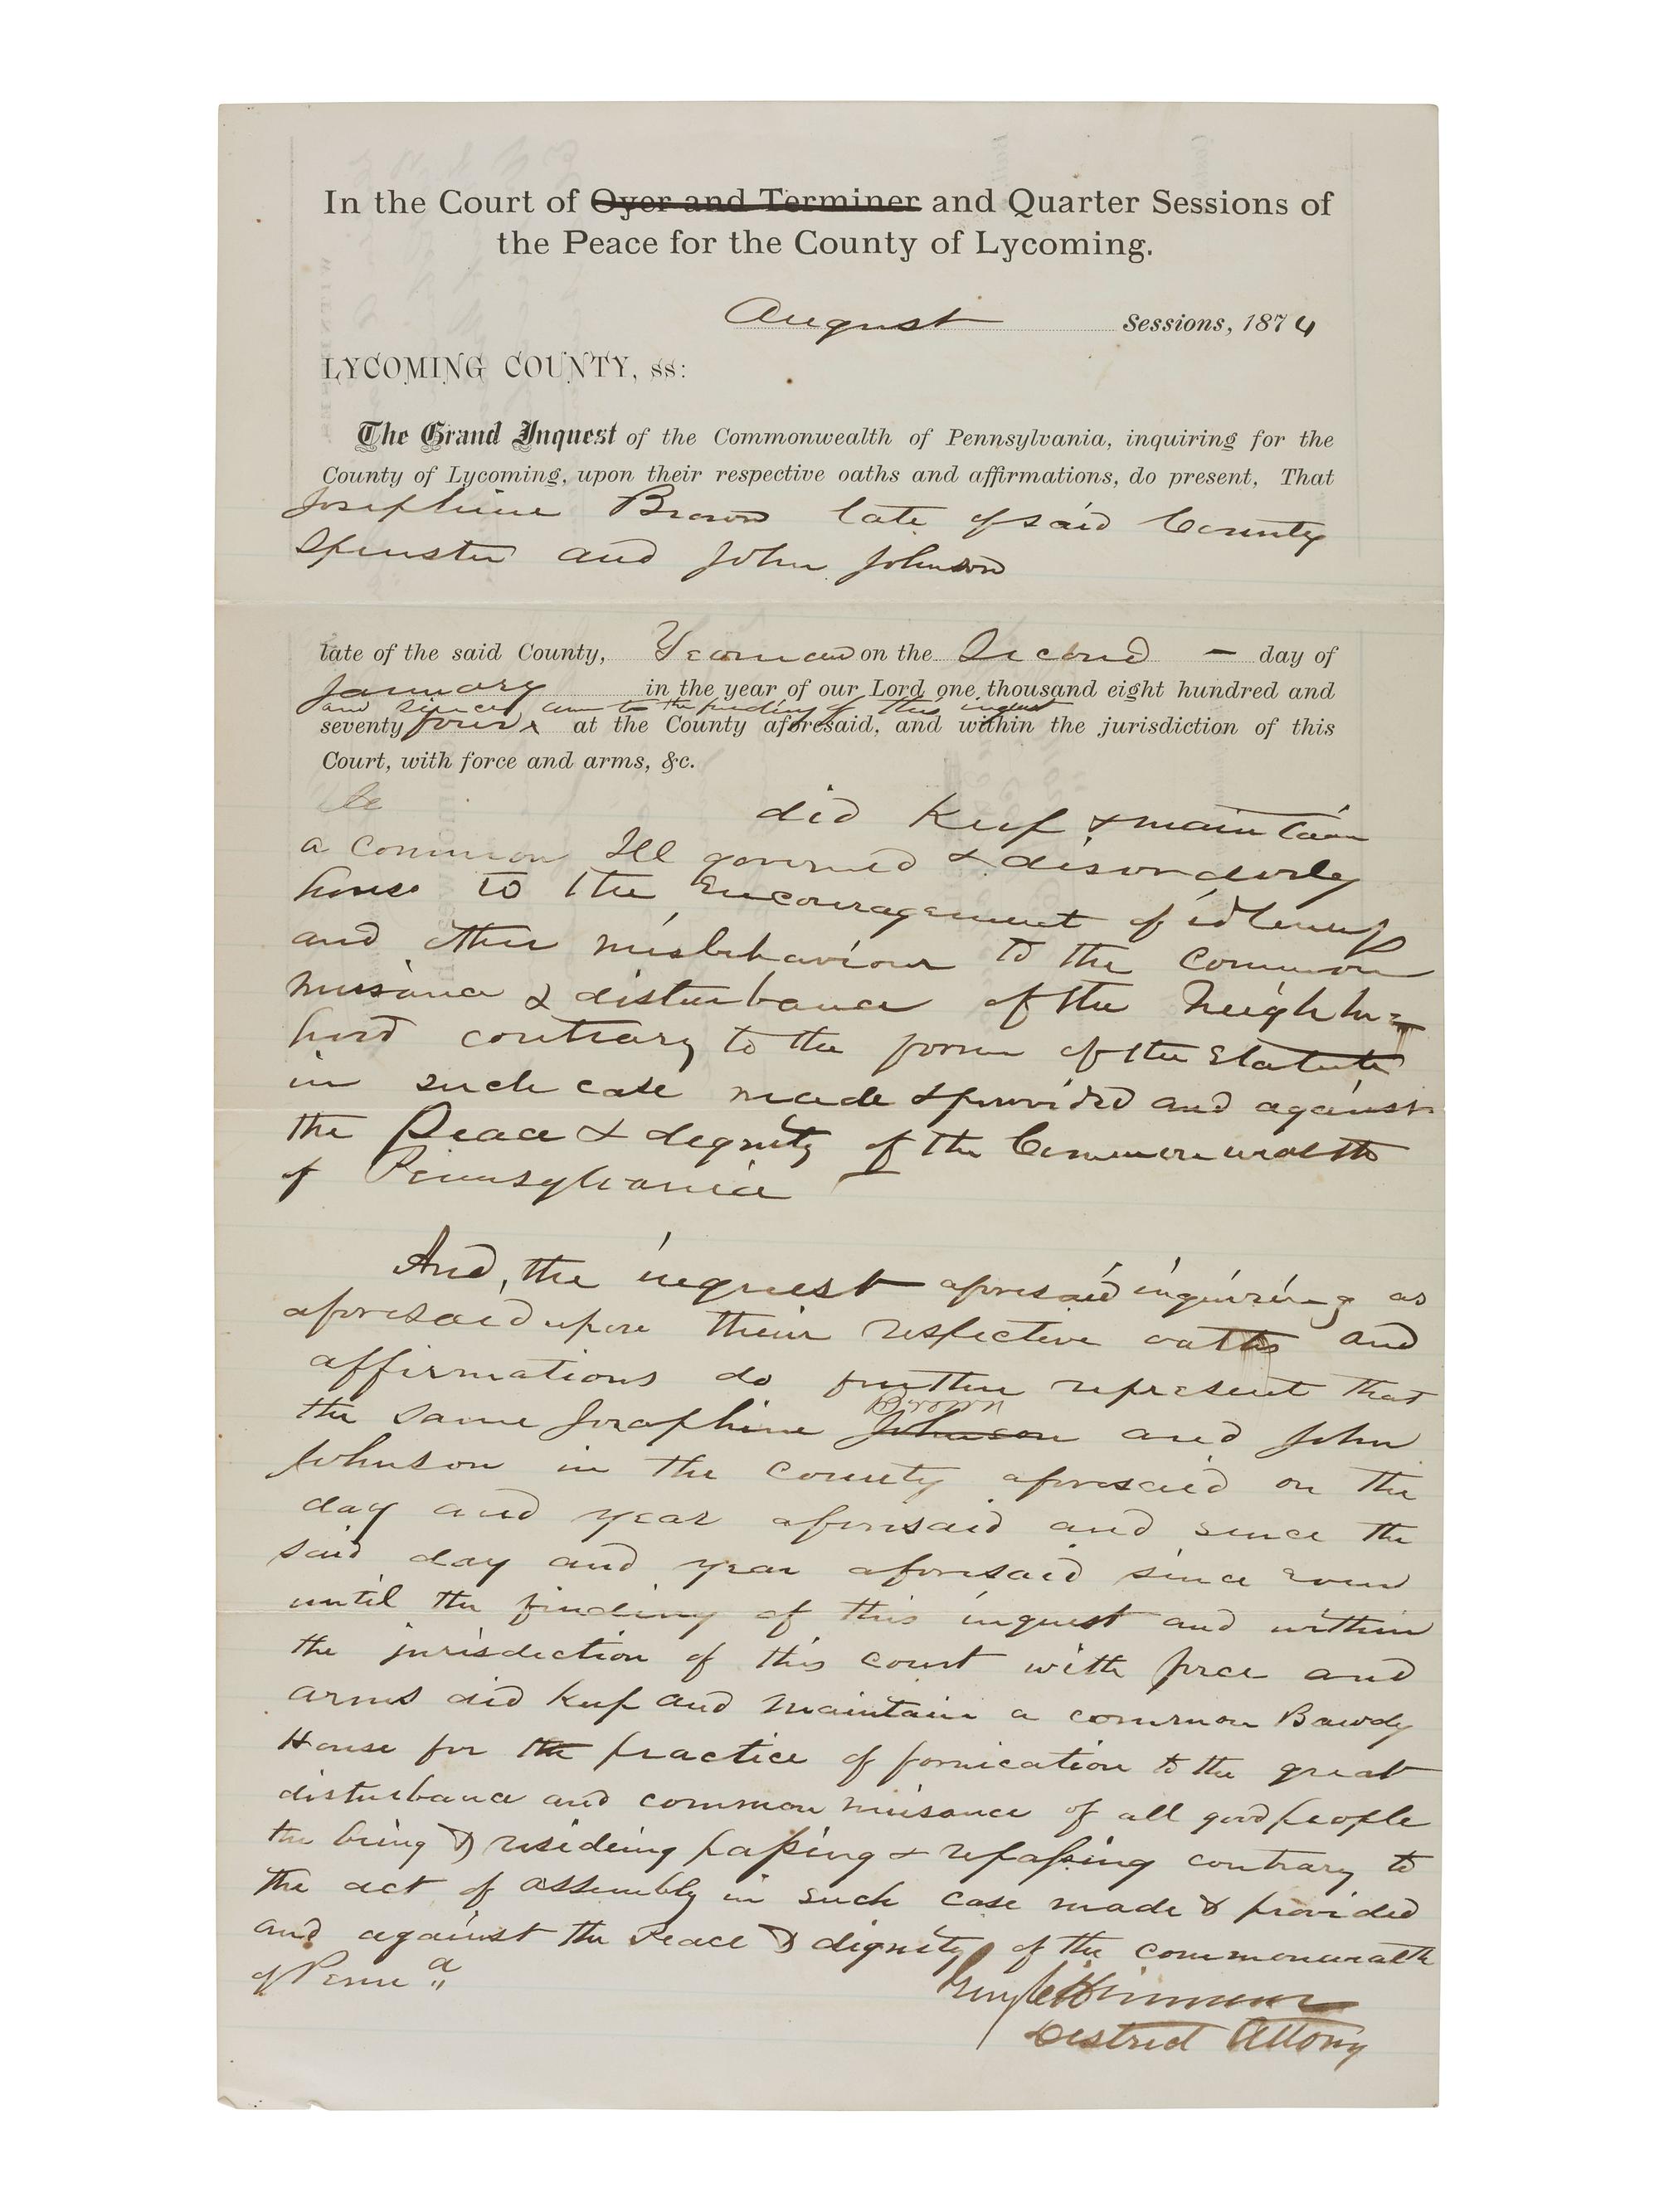 In the Court of Oyer and Terminer and Quarter Sessions of
the Peace for the County of Lycoming.
August Sessions, 1874
LYCOMING COUNTY, ss:
The Grand Inquest of the Commonwealth of Pennsylvania, inquiring for the
County of Lycoming, upon their respective oaths and affirmations, do present, That
Josephine Brown late of said County
Spinster and John Johnson
late of the said County, Yeoman on the Second — day of
January in the year of our Lord one thousand eight hundred and
and since to the finding of this inquest
seventy four at the County aforesaid, and within the jurisdiction of this
Court, with force and arms, &c.
did Keep & maintain
a common Ill governed & disorderly
house to the Encouragement of idleness
and other misbehaviour to the common
nuisance & disturbance of the Neighbor=
hood contrary to the form of the Statute
in such case made & provided and against
the Peace & dignity of the Commonwealth
of Pennsylvania
And, the inquest aforesaid inquiring as
aforesaid upon their respective oaths and
affirmations do further represent that
Brown
the same Josephine Johnson and John
Johnson in the county aforesaid on the
day and year aforesaid and since the
said day and year aforesaid since even
until the finding of this inquest and within
the jurisdiction of this court with force and
arms did keep and maintain a common Bawdy
House for the practice of fornication to the great
disturbance and common nuisance of all good people
the being & residing passing & repassing contrary to
the act of assembly in such case made & provided
and against the Peace & dignity of the commonwealth
of Penna
District Attorny